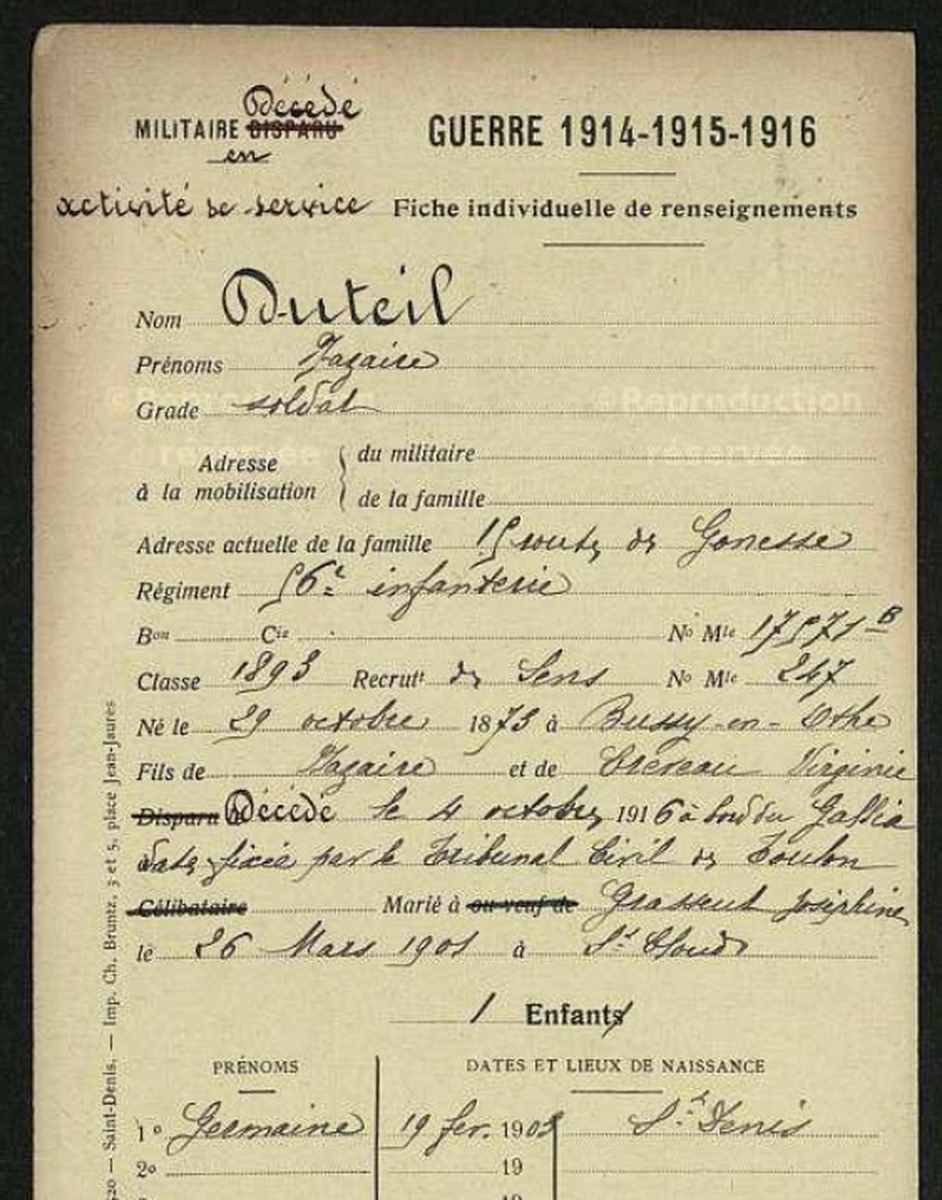 Décédé
MILITAIRE DISPARU
en
activité de service
GUERRE 1914-1915-1916
Fiche individuelle de renseignements
Nom Duteil
Prénoms Nazaire
Grade soldat
Adresse à la mobilisation
du militaire
de la famille
Adresse actuelle de la famille 15 route de Gonesse
Régiment 56e infanterie
Bon Cie No Mle 17571 B
Classe 1893 Recrutt de Sens No Mle 247
Né le 29 octobre 1873 à Bussy-en-Othe
Fils de Nazaire et de Virginie
Disparu Décédé le 4 octobre 1916 à bord du Gallia
date fixée par le Tribunal Civil de Toulon
Célibataire Marié à ou veuf de Joséphine
le 26 Mars 1901 à St Cloud
1 Enfants
PRÉNOMS DATES ET LIEUX DE NAISSANCE
1o Germaine 19 fev. 1903 St Denis
2o 19
19
20 — Saint-Denis. — Imp. Ch. Bruntz, 3 et 5, place Jean-Jaurès
Reproduction
réservée
Reproduction
réservée